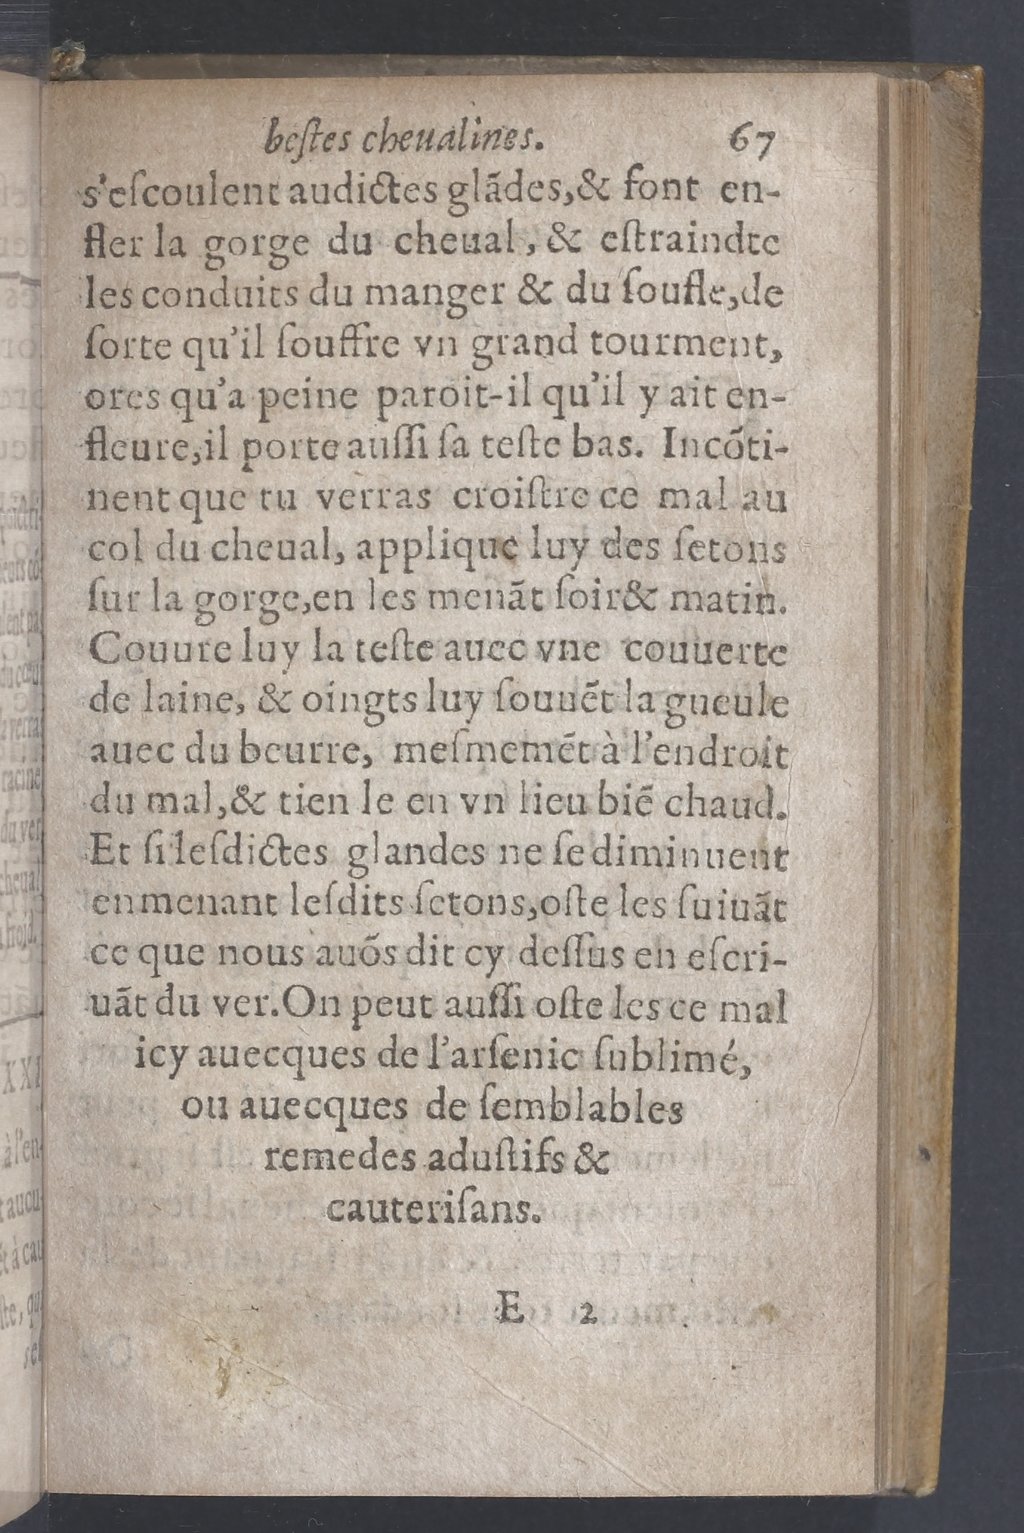 beſtes cheualines. 67
s'eſcoulent audictes glãdes,& font en-
fler la gorge du cheual, & eſtraindre
les conduits du manger & du ſoufle,de
ſorte qu'il ſouffre vn grand tourment,
ores qu'a peine paroit-il qu'il y ait en-
fleure,il porte auſſi ſa teſte bas. Incõti-
nent que tu verras croiſtre ce mal au
col du cheual, applique luy des ſetons
ſur la gorge,en les menãt ſoir& matin.
Couure luy la teſte auec vne couuerte
de laine, & oingts luy ſouuẽt la gueule
auec du beurre, meſmemẽt à l'endroit
du mal,& tien le en vn lieu biẽ chaud.
Et ſi leſdictes glandes ne ſe diminuent
en menant leſdits ſetons,oſte les ſuiuãt
ce que nous auõs dit cy deſſus en eſcri-
uãt du ver.On peut auſſi oſte les ce mal
icy auecques de l'arſenic ſublimé,
ou auecques de ſemblables
remedes aduſtifs &
cauteriſans.
E 2